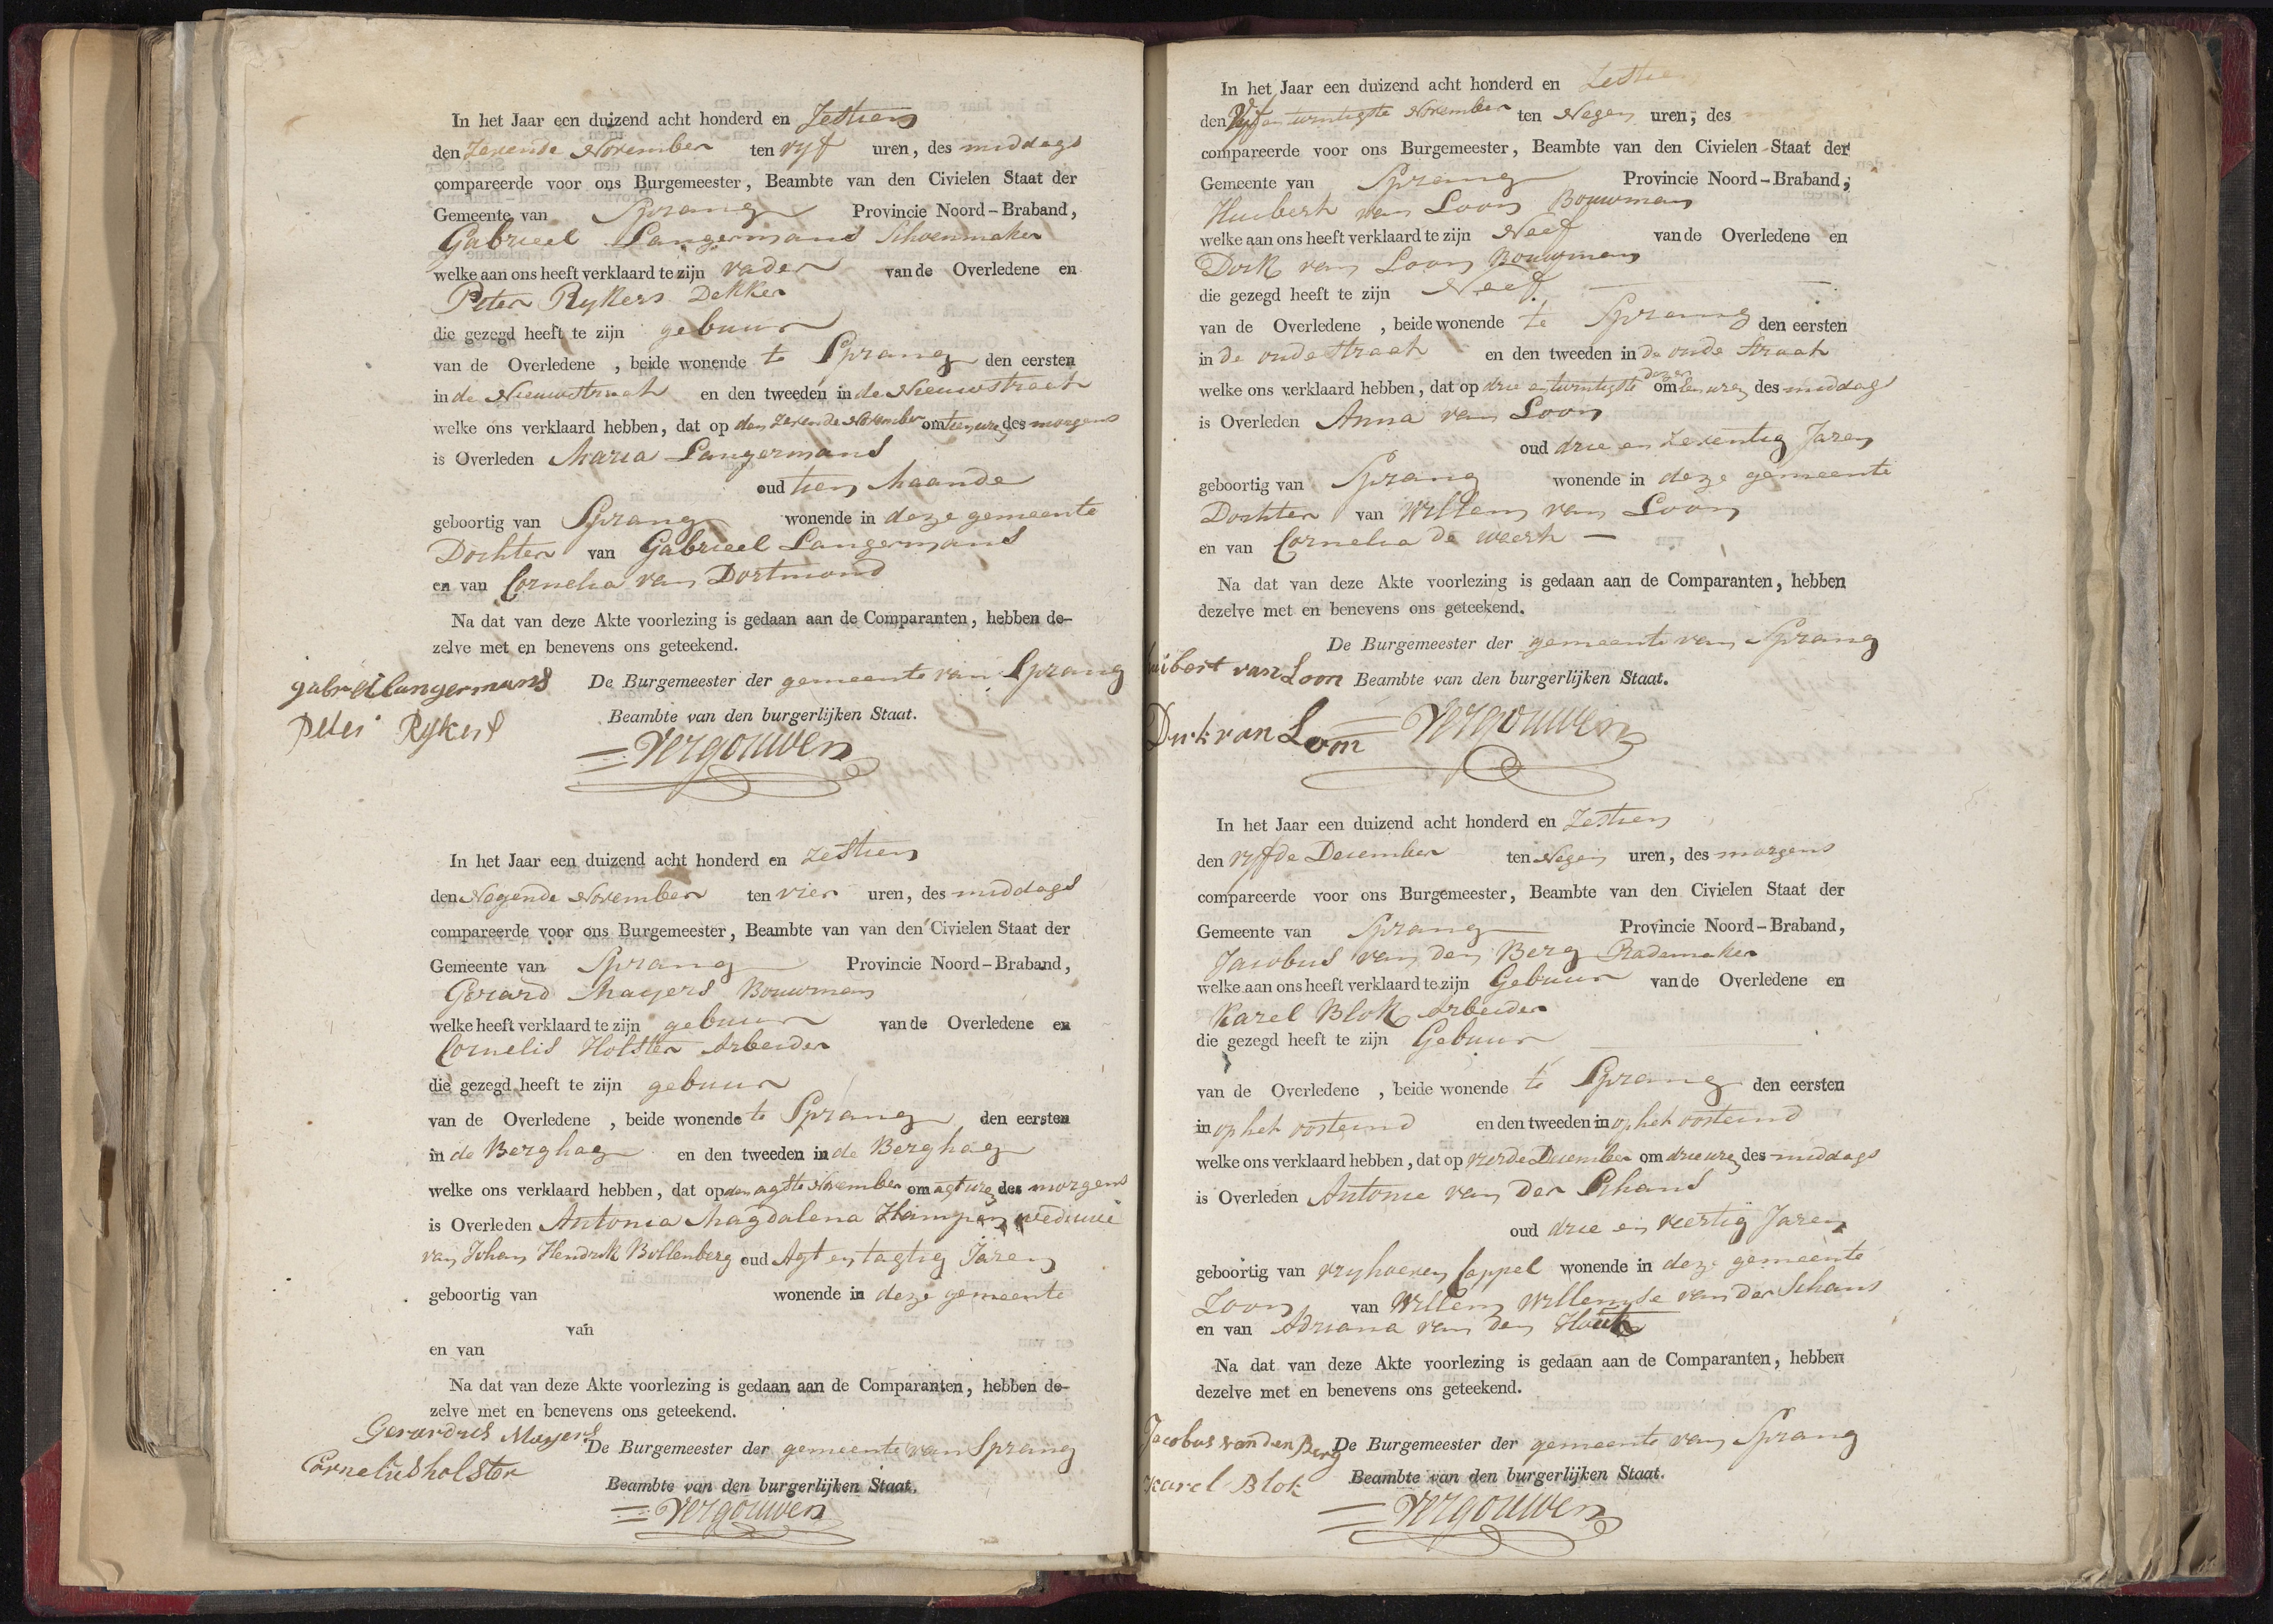 In het Jaar een duizend acht honderd en Zestien
den Zevende November ten vyf uren, des middags
compareerde voor ons Burgemeester, Beambte van den Civielen Staat der
Gemeente van Sprang Provincie Noord-Braband,
Gabrieel Langermans Schoenmaker
welke aan ons heeft verklaard te zijn vader van de Overledene en
Peter Rykers Dekker
die gezegd heeft te zijn gebuur
van de Overledene , beide wonende te Sprang den eersten
in de Nieuwstraat en den tweeden in de Nieuwstraat
welke ons verklaard hebben, dat op den Zevende November om tien uren des morgens
is Overleden Maria Langermans
oud tien Maande
geboortig van Sprang wonende in deze gemeente
Dochter van Gabrieel Langermans
en van Cornelia van Dortmond
Na dat van deze Akte voorlezing is gedaan aan de Comparanten, hebben de-
zelve met en benevens ons geteekend.
gabriel langermans De Burgemeester der gemeente van Sprang
Peter Rykers Beambte van den burgerlijken Staat.
Vergouwen
In het Jaar een duizend acht honderd en Zestien
den Negende November ten vier uren, des middags
compareerde voor ons Burgemeester, Beambte van van den Civielen Staat der
Gemeente van Sprang Provincie Noord-Braband,
Gerard Mayers Bouwman
welke heeft verklaard te zijn gebuur van de Overledene en
Cornelis Holster Arbeider
die gezegd heeft te zijn gebuur
van de Overledene , beide wonende te Sprang den eersten
in de Berghag en den tweeden in de Berghag
welke ons verklaard hebben, dat op den agtste November om agt uren des morgens
is Overleden Antonia Magdalena weduwe
van Johan Hendrik Bollenberg oud Agt en tagtig Jaren
geboortig van wonende in deze gemeente
van
en van
Na dat van deze Akte voorlezing is gedaan aan de Comparanten, hebben de-
zelve met en benevens ons geteekend.
Gerardus Mayers De Burgemeester der gemeente van Sprang
Cornelis holster
Beambte van den burgerlijken Staat.
Vergouwen
In het Jaar een duizend acht honderd en Zestien
den Vyf en twintigste November ten Negen uren, des
compareerde voor ons Burgemeester, Beambte van den Civielen Staat der
Gemeente van Sprang Provincie Noord-Braband,
Huibert van Loon Bouwman
welke aan ons heeft verklaard te zijn Neef van de Overledene en
Dirk van Loon Bouwman
die gezegd heeft te zijn Neef
van de Overledene , beide wonende te Sprang den eersten
in de oude straat en den tweeden in de oude straat
welke ons verklaard hebben, dat op drie en twintigste dezer om tien uren des middags
is Overleden Anna van Loon
oud drie en Zeventig Jaren
geboortig van Sprang wonende in deze gemeente
Dochter van Willem van Loon
en van Cornelia de weert
Na dat van deze Akte voorlezing is gedaan aan de Comparanten, hebben
dezelve met en benevens ons geteekend.
De Burgemeester der gemeente van Sprang
uibert van Loon Beambte van den burgerlijken Staat.
Dirk van Loon Vergouwen
In het Jaar een duizend acht honderd en Zestien
den vyfde December ten Negen uren, des morgens
compareerde voor ons Burgemeester, Beambte van den Civielen Staat der
Gemeente van Sprang Provincie Noord-Braband,
Jacobus van den Berg Rademaker
welke aan ons heeft verklaard te zijn Gebuur van de Overledene en
Karel Blok Arbeider
die gezegd heeft te zijn Gebuur
van de Overledene , beide wonende te Sprang den eersten
in op het oosteind en den tweeden in op het oosteind
welke ons verklaard hebben, dat op vierde December om drie uren des middags
is Overleden Antonie van der Schans
oud drie en veertig Jaren
geboortig van vryhoeven Cappel wonende in deze gemeente
Zoon van Willem Willemse van der Schans
en van Adriana van den Hout
Na dat van deze Akte voorlezing is gedaan aan de Comparanten, hebben
dezelve met en benevens ons geteekend.
Jacobus van den Berg De Burgemeester der gemeente van Sprang
Karel Blok Beambte van den burgerlijken Staat.
Vergouwen